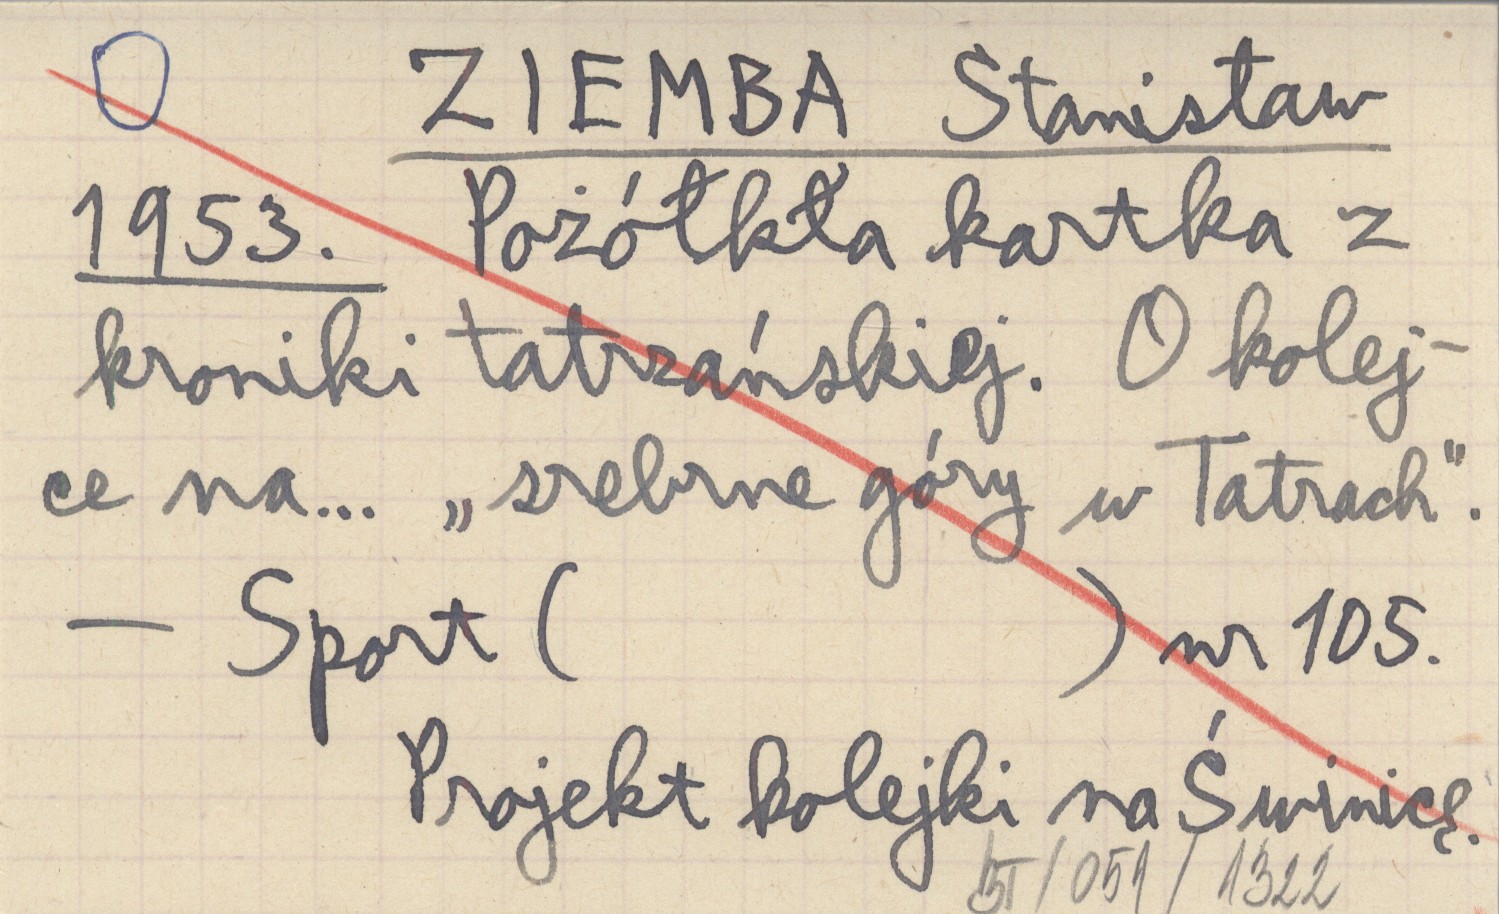 ZIEMBA Stanisław
1953. Pożółkła kartka z
kroniki tatrzańskiej. O kolej-
ce na... „srebrne góry w Tatrach".
— Sport ( ) nr 105.
Projekt kolejki na Świnicę.
/ 051 / 1322